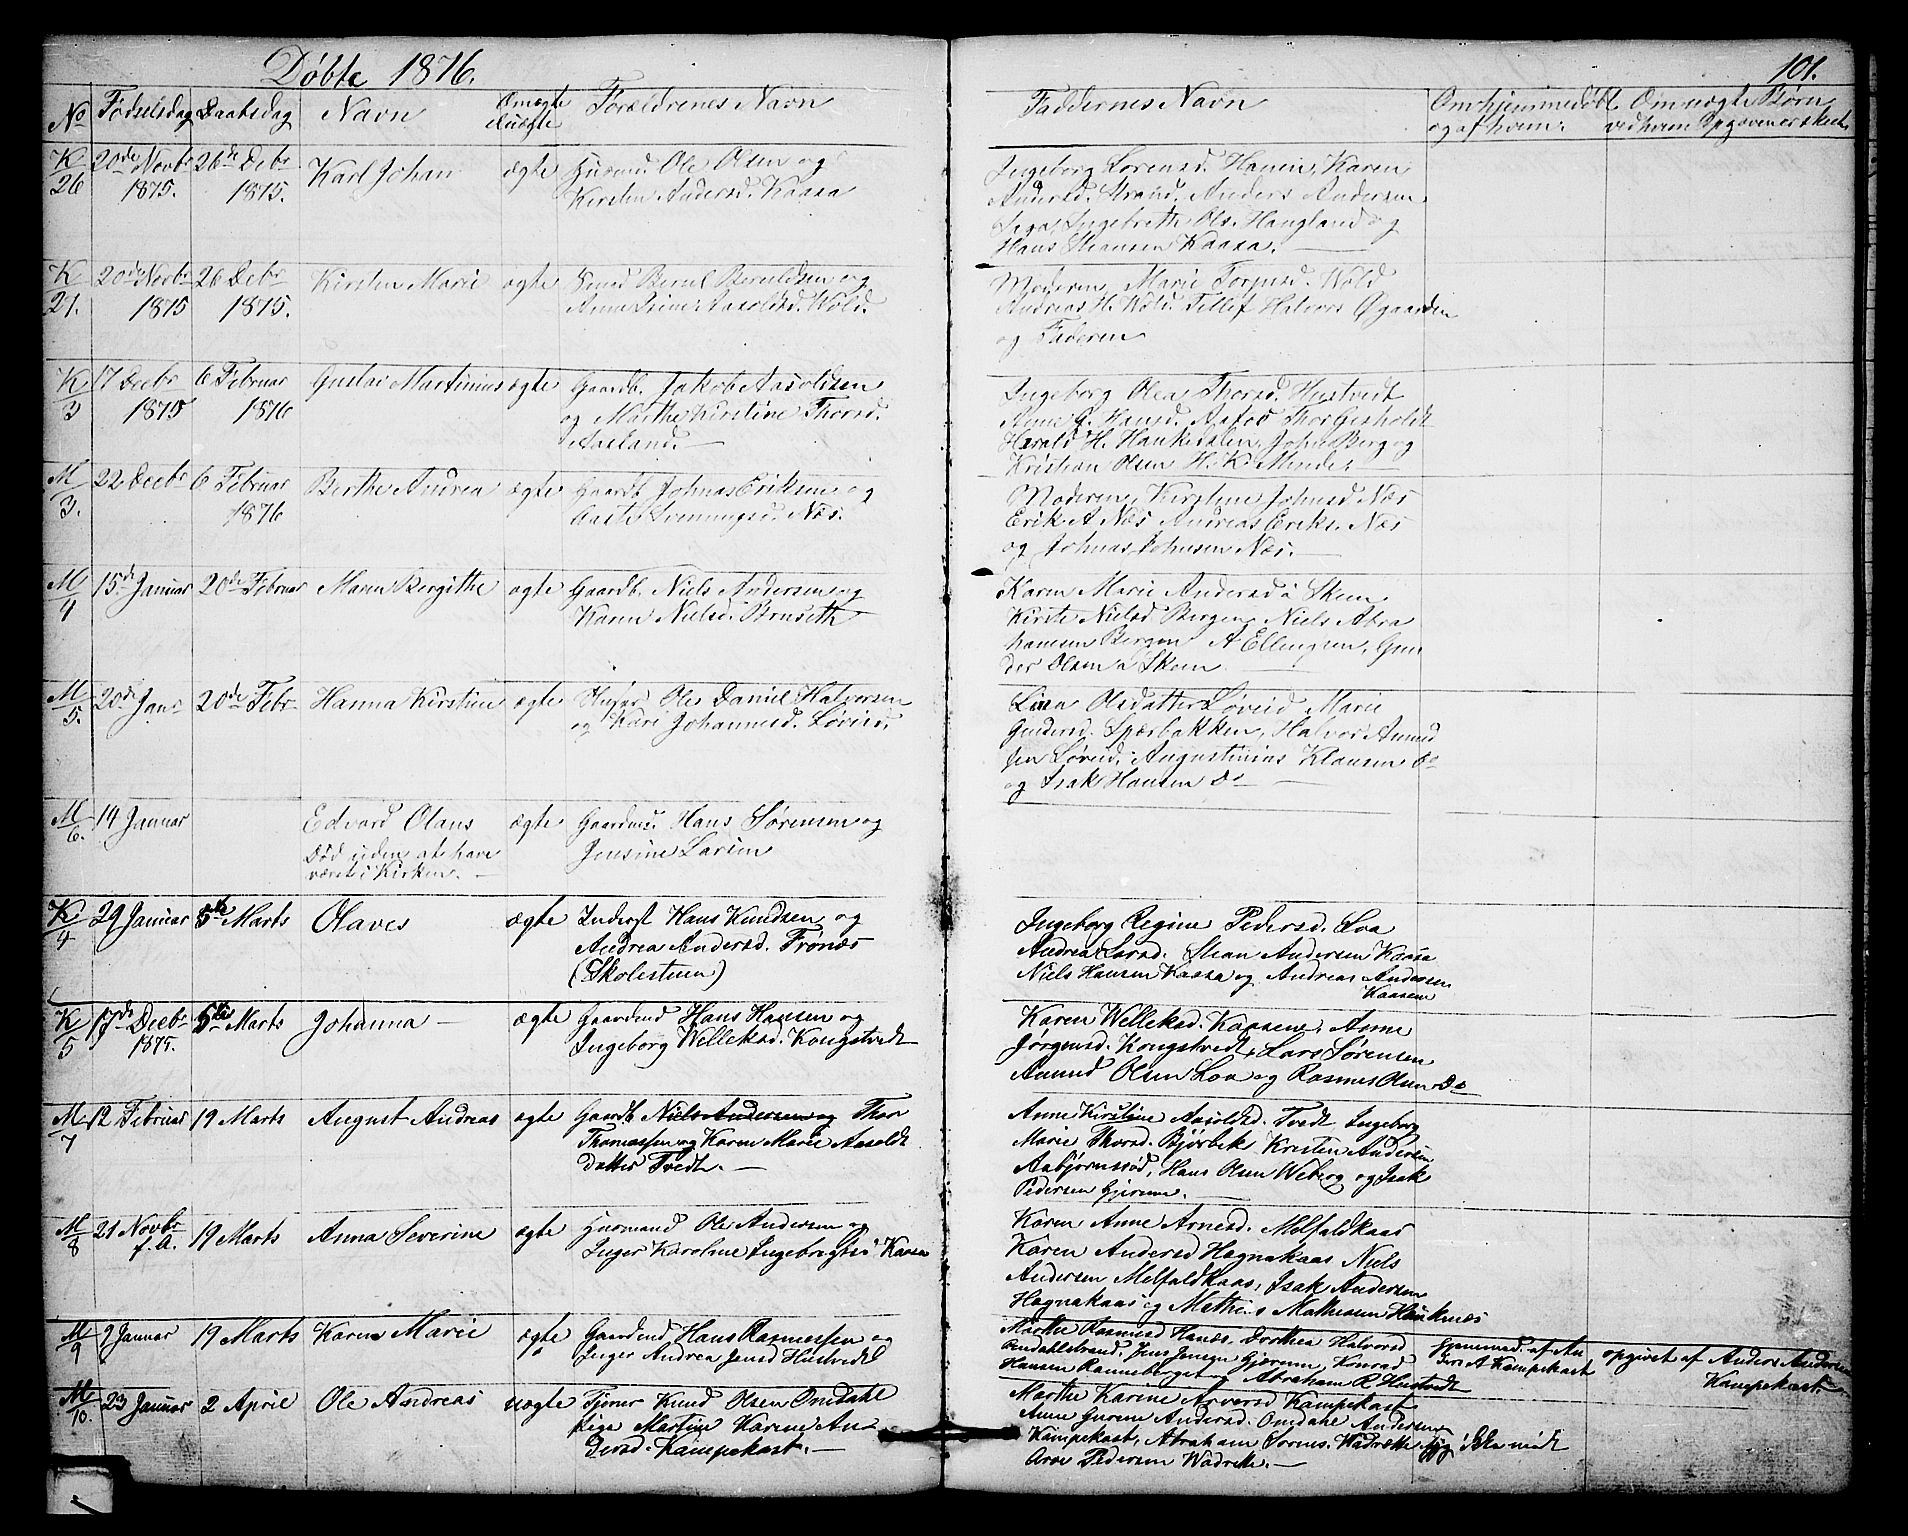 Døbte 1876.
101.
No Fødselsdag Daabsdag Navn Om ægte el. uægte Forældrenes Navn Faddernes Navn Om hjemmedøbt og af hvem. Om uægte Børn ved hvem Opgaven er skeet
K 26 20de Novbr 1875. 26de Debr 1875. Karl Johan ægte Husmd. Ole Olsen og
Kirsten Andersd. Kaasa
Ingeborg Lorensd. Hanin, Karen
Andersd. Strand, Anders Andersen
Ingebreth Ols. Haugland og
Hans Steansen Kaasa.
K 27. 20de Novbr 1875 26 Debr 1875. Kirsten Marie ægte Bernt Berntsen og
Anne Aasoldsd. Wold.
Moderen, Marie Torjusd. Wold
Andreas H. Wold. Tellef Halvors Øgaarden
og Faderen
K 3 17 Decbr 1875 6 Februar 1876 Gustav Martinius ægte Gaardb. Jakob Aasoldsen
og Marthe Kirstine Thorsd.
Aasland.
Ingeborg Olea Thorsd. Hustvedt
Anne G. Hansd. Aafos Thor Gisholdt
Harald H. Haukedalen, John Berg og
Kristian Olsen H. K. Minde.
M 3. 22 Decbr 6 Februar 1876 Berthe Andrea ægte Gaardb. Johnas Eriksen og
Aaste Svenningsd. Næs.
Moderen, Kirstine Johnsd Næs
Erik A Næs Andreas Eriks. Næs
og Johnas Johnsen Næs.
M 4 15de Januar 20de Februar Maren Bergithe ægte Gaardb. Niels Andersen og
Karen Nielsd. Bruseth
Karen Marie Andersd a Skeen
Kirste Nielsd Bergen, Niels Abra
hamsen Bergen A Ellingsen, Gun
der Olsen a Skeen
M 5. 20de Janr 20de Febr. Hanna Kirstine ægte Ole Daniel Halvorsen
og Kari Johannesd. Løveid.
Lina Olsdatter Løveid Marie
Gundersd. Sperbakken, Halvor Amund
sen Løveid, Augustinius Klausen do
og Isak Hansen do
M 6. 14 Januar Edvard Olaus ægte Gaardmd. Hans Sørensen og
Død uden at have Jensine Larsen
været i Kirken.
K 4 29 Januar 5te Marts Olaves ægte Inderst Hans Knudsen og
Andrea Andersd. Frønæs
(Skolestuen)
Ingeborg Regine Pedersd. Loa
Andrea Larsd. Stean Andersen Kaasa
Niels Hansen Kaasa og Andreas Andersen
Kaasen
K 5 17de Decbr 1875. 5te Marts Johanna ægte Gaardmd Hans Hansen og
Ingeborg Welleksd. Kongstvedt
Karen Welleksd. Kaasene, Anne
Jørgensd. Kongstvedt, Lars Sørensen
Amund Olsen Loa og Rasmus Olsen do
M 7 12 Februar 19 Marts August Andreas ægte Gaardb. Niels Andersen og Thor
Thomassen og Karen Marie Aasoldt
datter Tvedt.
Anne Kirstine Aasoldsd. Tvedt Ingeborg
Marie Thorsd. Bjørbek Kristen Andersen
Asbjørnsrød, Hans Olsen Weberg og Isak
Pedersen Gjerum.
M 8 21 Novbr f. A. 19 Marts Anna Severine ægte Huusmand Ole Andersen og
Inger Karoline Ingebregtsd Kaasa
Karen Anne Arnesd. Melfaldkaas
Karen Andersd Hagnakaas Niels
Andersen Melfaldkaas, Isak Andersen
Hagnakaas og Mathias Mathiasen Hauknæs
M 9 9 Januar 19 Marts Karen Marie ægte Gaardmd Hans Rasmussen og
Inger Andrea Jensd Hustvedt
Marthe Rasmusd Hanæs. Dorthea Halvorsd
Omdahlstrand, Jens Jensen Gjerum, Konrad
Hansen Ranneberget og Abraham R. Hustvedt
Hjemmed. af An
ders A Kampekast
M 10. 23 Januar 2 April Ole Andreas uægte Tjener Knud Olsen Omdahl
Pige Martine Karine An
dersd. Kampekast.
opgivet af Anders Andersen
Kampekast
Marthe Karine Arversd Kampekast
Anne Gurine Andersd. Omdahl Andersen
Kampekast, Abraham Sørens. Wadrette
Arve Pedersen Wadrette.
og ikke mødt